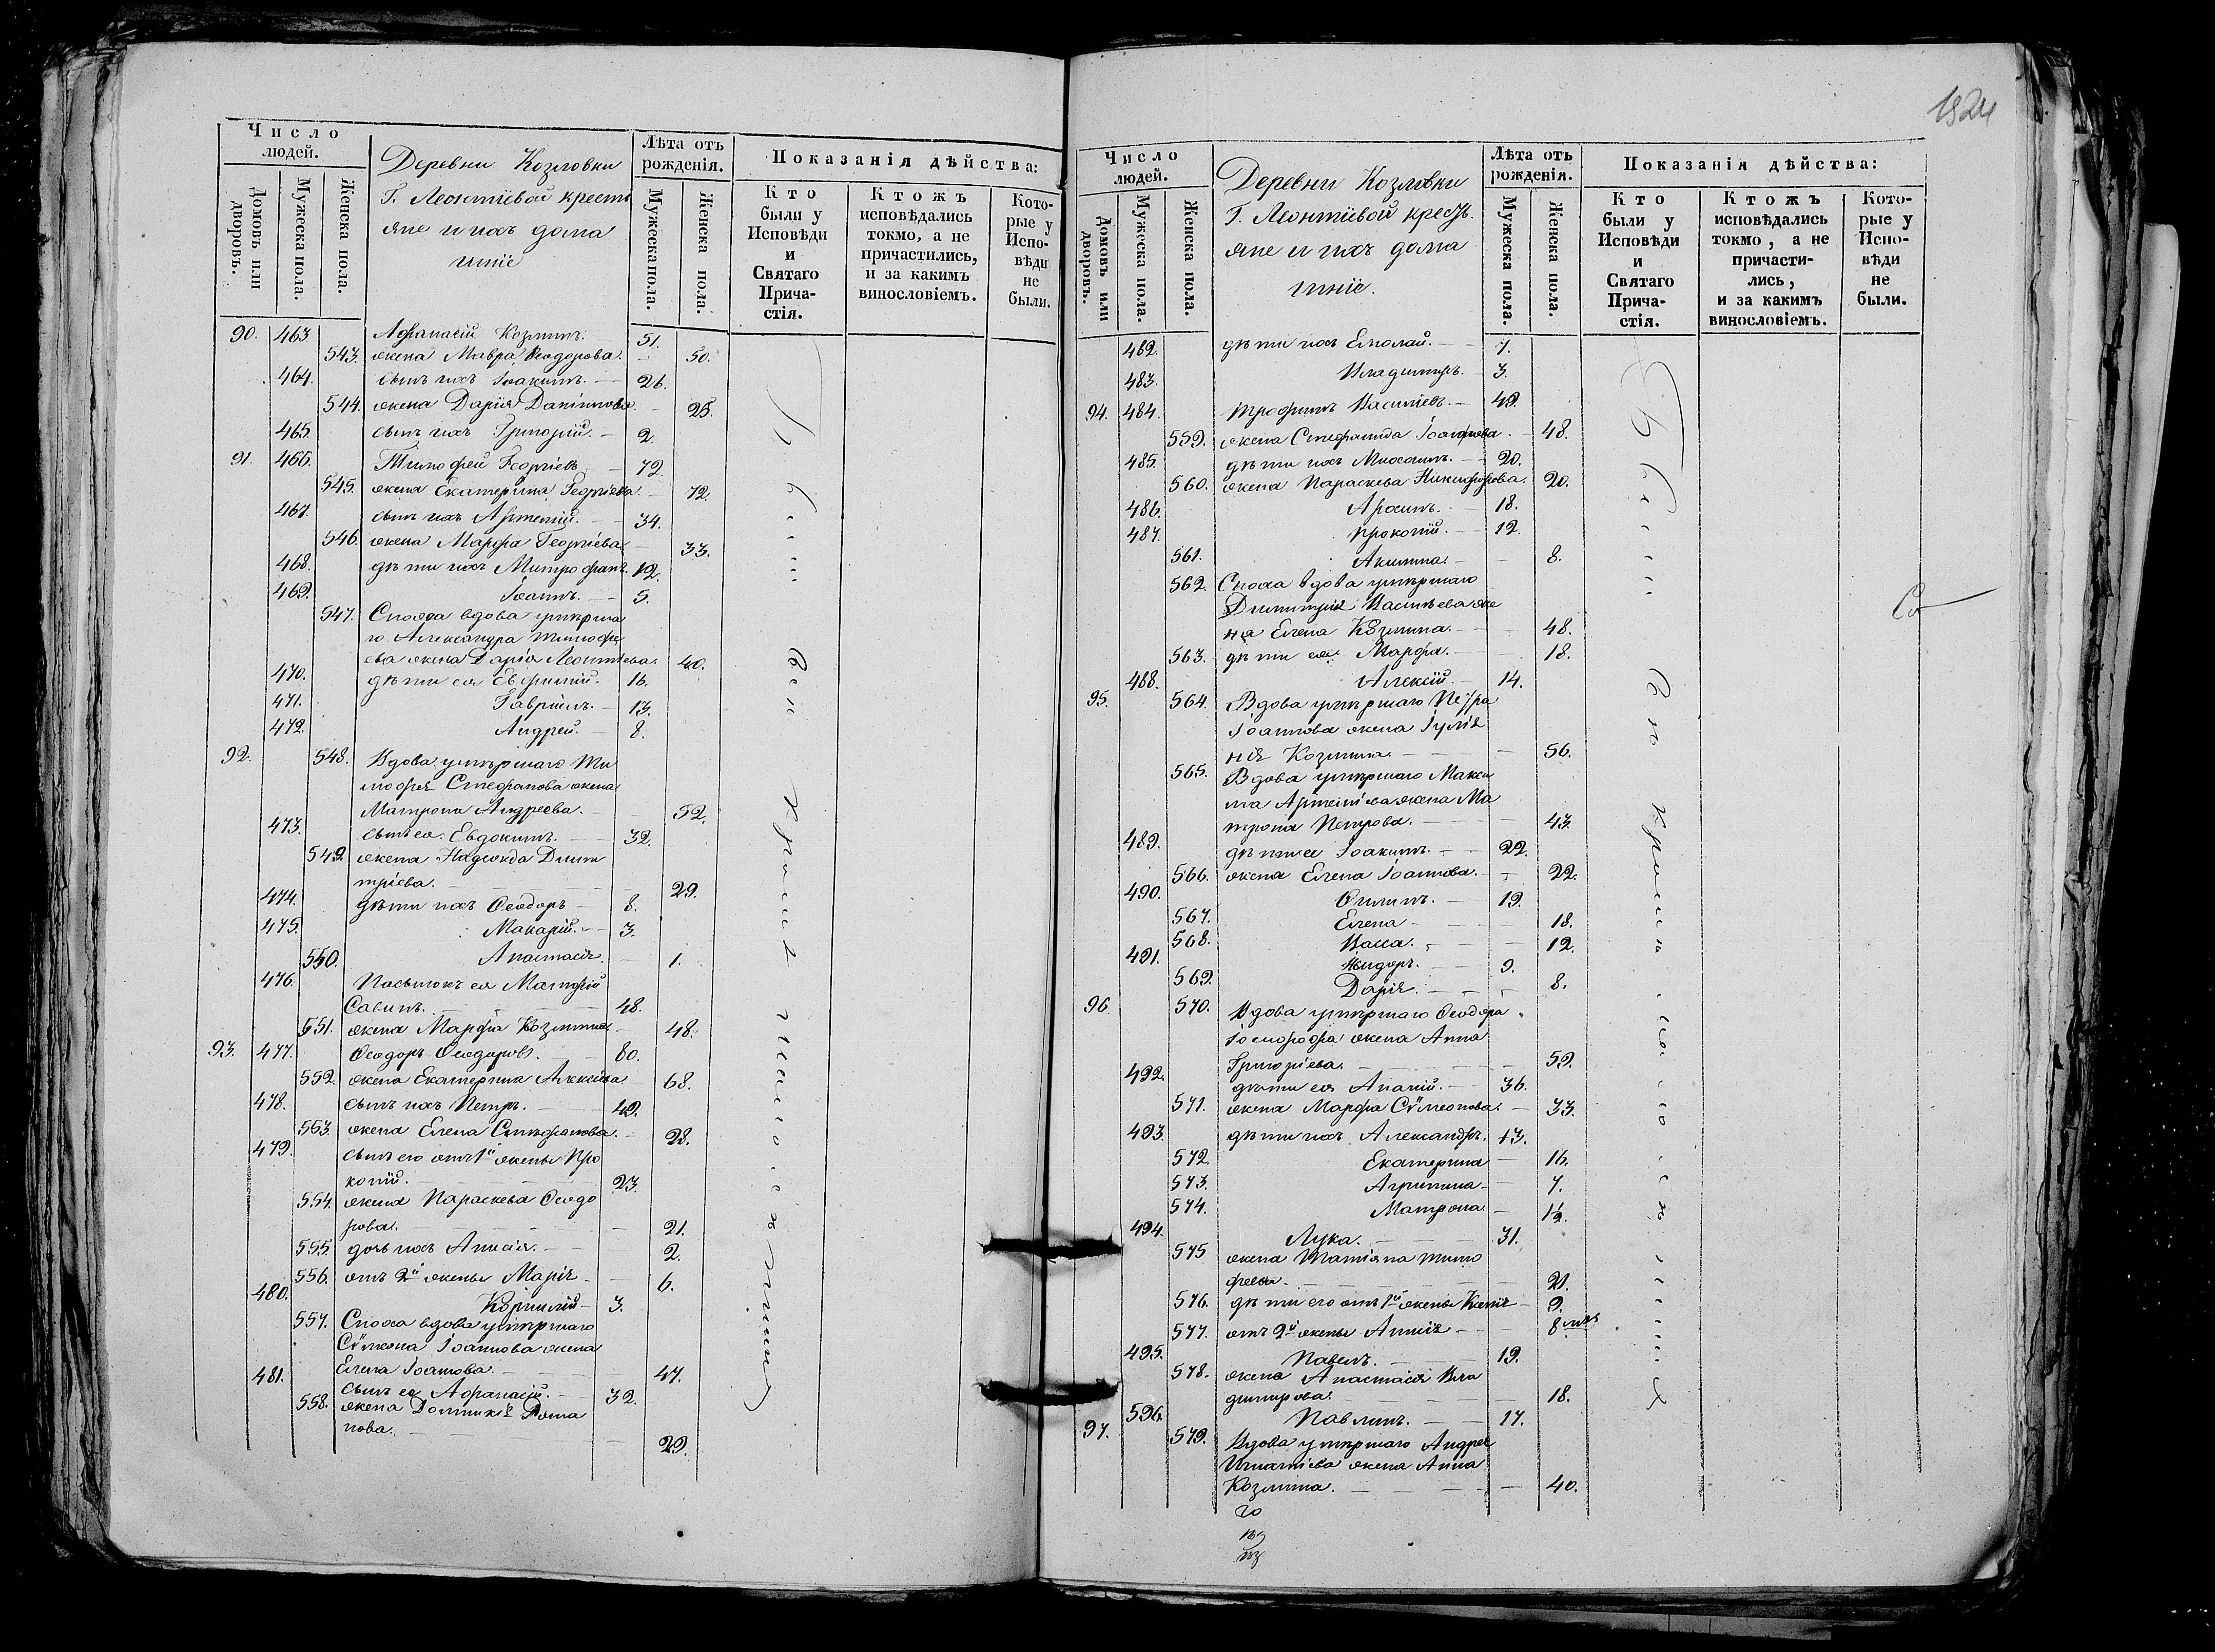 1824
Число людей.
Домовъ или дворовъ.
Мужеска пола.
Женска пола.
Деревни Козловки
Г. Леонтіевой крестья
яне и ихъ дома
шніе
Лѣта отъ рожденія.
Мужеска пола.
Женска пола.
Показанія дѣйства:
Кто были у Исповѣди и Святаго Причастія.
Ктожъ исповѣдались токмо, а не причастились, и за какимъ винословіемъ.
Которые у Исповѣди не были.
90. 463. Афанасій Козминъ. 51.
543. жена Мавра Ѳеодорова. – 50.
464. сынъ ихъ Іоакимъ. – 26.
544. жена Дарія Даніилова. – 25.
465. сынъ ихъ Григорій. – 2.
91. 466. Тимофей Георгіевъ – 72.
545. жена Екатерина Георгіева. – 72.
467. сынъ ихъ Артемій. – 34.
546. жена Марфа Георгіева – 33.
468. дѣти ихъ Митрофанъ. 12.
469. Іоаннъ. – 5.
547. Сноха вдова умершаго
Александра Тимофе
ева жена Дарія Леонтіева. 40.
470. дѣти ея Евфимій. 16.
471. Гавріилъ. – 13.
472. Андрей. – 8.
92. 548. Вдова умершаго Ти
мофея Стефанова жена
Матрона Андреева. – 52.
473. сынъ ея Евдокимъ. – 32.
549. жена Надежда Дими
тріева. – 29.
474. дѣти ихъ Ѳеодоръ – 8.
475. Макарій. – 3.
550. Анастасія. – 1.
476. Пасынокъ ея Матфей
Савинъ. – 48.
551. жена Марфа Козмина 48.
93. 477. Ѳеодоръ Ѳеодоровъ. – 80.
552. жена Екатерина Алексіева 68.
478. сынъ ихъ Петръ. – 49.
553. жена Елена Стефанова. – 28.
479. сынъ его отъ 1й жены Про
копій. – 23.
554. жена Параскева Ѳеодо
рова. – 21.
555. дочь ихъ Анисія. – 2.
556. отъ 2й жены Марія – 6.
480. Корнилій – 3.
557. Сноха вдова умершаго
Сѵмеона Іоаннова жена
Елена Іоаннова. – 47.
481. сынъ ея Афанасій. – 32.
558. жена Домникія Рома
нова. – 29.
Были
Всѣ
Число людей.
Домовъ или дворовъ.
Мужеска пола.
Женска пола.
Деревни Козловки
Г. Леонтіевой кресть
яне и ихъ дома
шніе.
Лѣта отъ рожденія.
Мужеска пола.
Женска пола.
Показанія дѣйства:
Кто были у Исповѣди и Святаго Причастія.
Ктожъ исповѣдались токмо, а не причастились, и за какимъ винословіемъ.
Которые у Исповѣди не были.
482. дѣти ихъ Ермолай. – 7.
483. Владиміръ. – 3.
94. 484. Трофимъ Василіевъ. – 49.
559. жена Стефанида Іоаннова. – 48.
485. дѣти ихъ Михаилъ. – 20.
560. жена Параскева Никифорова. 20.
486. – 18.
487. Прокопій. – 12.
561. Акилина. – 8.
562. Сноха вдова умершаго
Димитрія Василіева же
на Елена Козмина. – 48.
563. дѣти ея Марфа. – 18.
488. Алексій. – 14.
95. 564. Вдова умершаго Петра
Іоаннова жена Іуліа
нія Козмина. – 56.
565. Вдова умершаго Макси
ма Артеміева жена Ма
трона Петрова. – 43.
489. дѣти ея Іоакимъ. – 22.
566. жена Елена Іоаннова. – 22.
490. Филипъ. – 19.
567. Елена – 18.
568. Васса. – 12.
491. – 9.
569. Дарія. – 8.
96. 570. Вдова умершаго Ѳеодора
жена Анна
Григоріева. – 59.
492. дѣти ея Ананій. – 36.
571. жена Марфа Сѵмеонова. – 33.
493. дѣти ихъ Александръ. 13.
572. Екатерина – 16.
573. Агрипина. – 7.
574. Матрона – 1½.
494. Лука. – 31.
575. жена Татіана Тимо
феева. – 21.
576. дѣти его отъ 1й жены Ксенія – 9.
577. отъ 2й жены Аннія – 8 мѣс
495. Павелъ. – 19.
578. жена Анастасія Вла
димирова. – 18.
596. Павлинъ. – 17.
97. 579. Вдова умершаго Андрея
Игнатіева жена Анна
Козмина. – 40.
Были
Всѣ